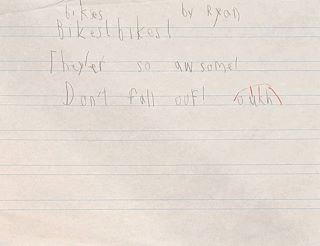 bikes by Ryan
Bikes! bikes!
They'er so awsome!
Don't fall oof!